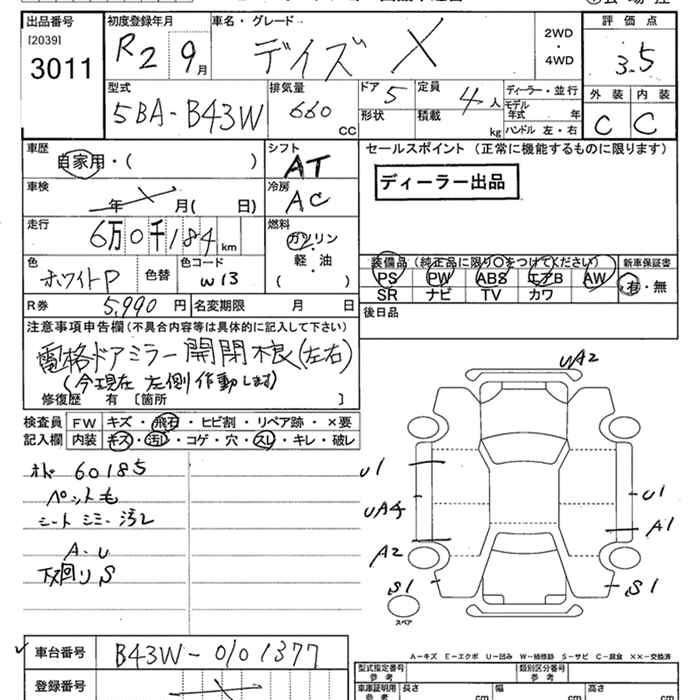 出品番号 初度登録年月 車名・グレード 評価点
[2039]
3011 R2 9月 デイズ X 2WD・4WD 3.5
型式 排気量 ドア 5 定員 4人 ディーラー・並行 外装 内装
5BA-B43W 660 CC 形状 積載 kg モデル年式 年 C C
ハンドル 左・右
車歴 シフト セールスポイント (正常に機能するものに限ります)
自家用・( ) AT
ディーラー出品
車検 冷房
年 月( 日) AC
走行 燃料
6万0千184km ガソリン
軽・油
( )
装備品 (純正品に限り○をつけてください) 新車保証書
色 色替 色コード PS PW ABS エアB AW 有・無
ホワイトP W13 SR ナビ TV カワ
R券 5,990円 名変期限 月 日 後日品
注意事項申告欄(不具合内容等は具体的に記入して下さい)
電格ドアミラー開閉不良(左右)
(今現在 左側作動します)
修復歴 有 〔箇所 〕
検査員 FW キズ・飛石・ヒビ割・リペア跡・×要
記入欄 内装 キズ・汚レ・コゲ・穴・スレ・キレ・破レ
UA2
オド 60185
ペット毛
シート シミー 汚レ
A・U
下回りS
U1
UA4
A2
S1
U1
A1
S1
スペア
A-キズ E-エクボ U-凹み W-補修跡 S-サビ C-腐食 ××-交換済
車台番号 B43W-0101377
型式指定番号 参考 類別区分番号 参考
登録番号
車庫証明用 参考 長さ cm 幅 cm 高さ cm